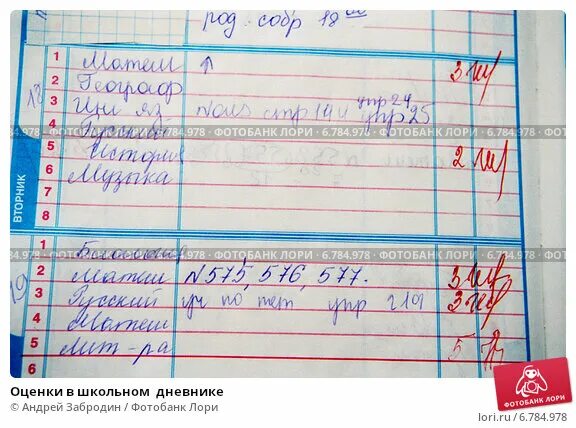 род. собр 18 00
1 Матем ↑ 3
2 Географ
18 3 Ин. яз. стр 14 упр 24
4 Русский упр 25
5 История 2
6 Музыка
7
8
ВТОРНИК
1 Биология
19 2 Матем №575, 576, 577. 3
3 Русский уч по тет упр 219 3
4 Матем
5 Лит-ра 5
6
6.784.978 · ФОТОБАНК ЛОРИ · 6.784.978 · ФОТОБАНК ЛОРИ · 6.784.978
Оценки в школьном дневнике
© Андрей Забродин / Фотобанк Лори
ФОТОБАНК ЛОРИ
lori.ru/6.784.978